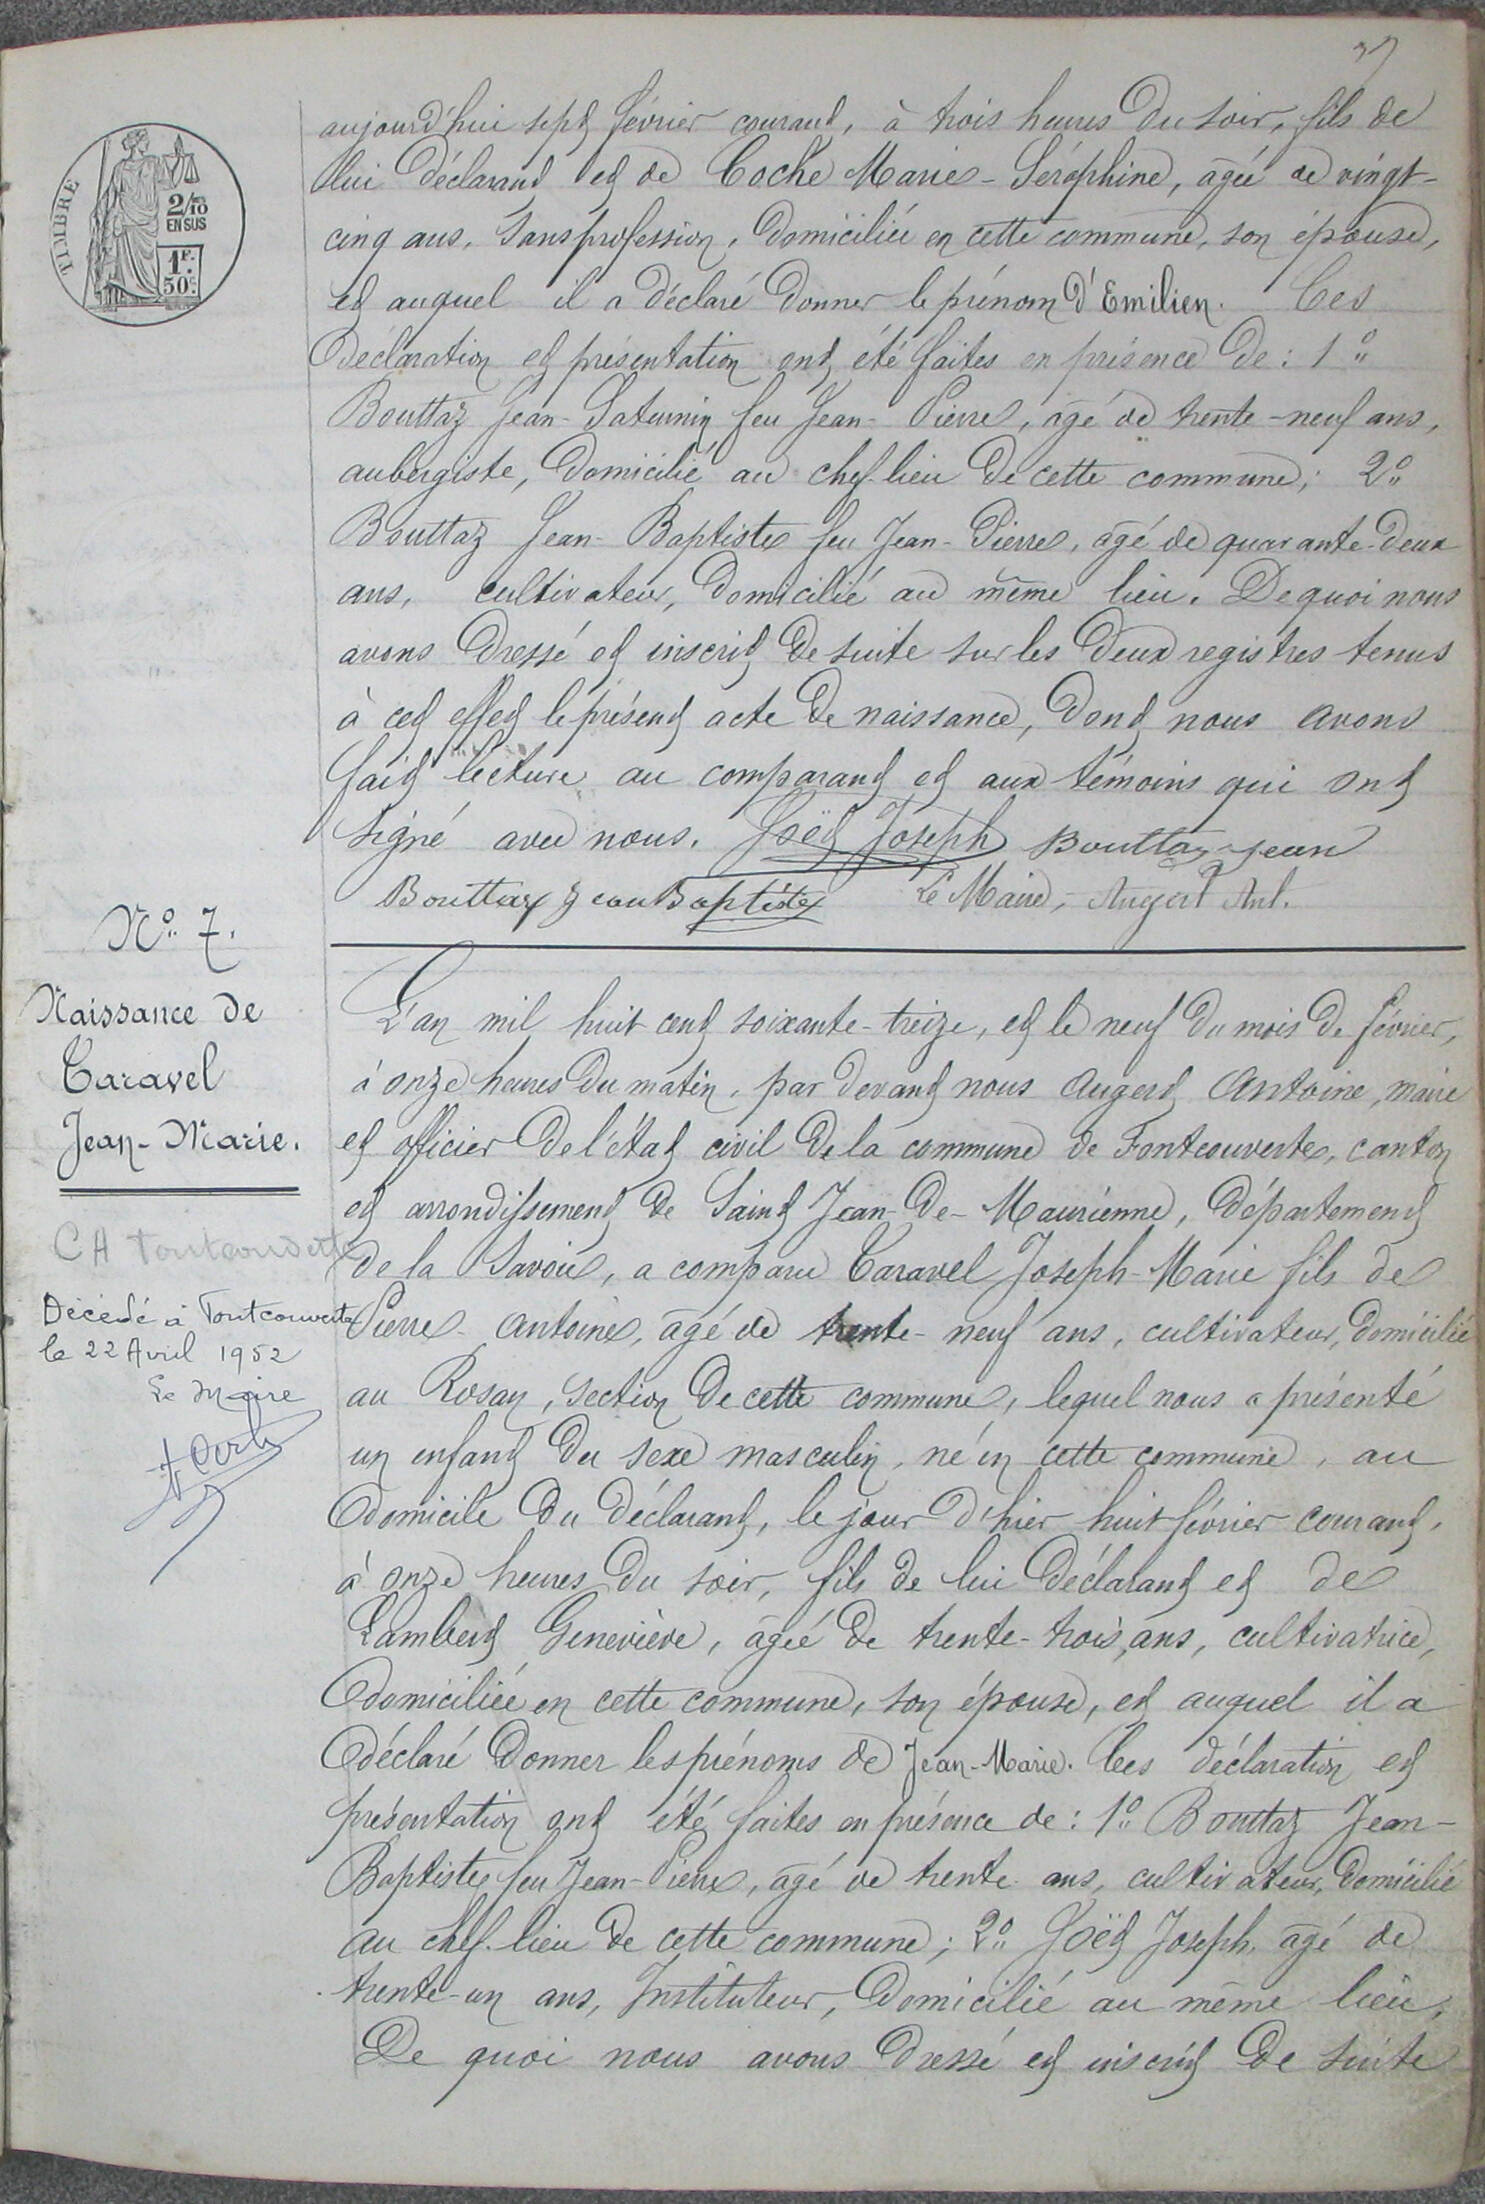 TIMBRE
2/10
EN SUS
1F.
50c.
aujourd'hui sept février courant, à trois heures du soir, fils de
lui déclarant et de Coche Marie-Séraphine, agée de vingt-
cinq ans, sans profession, domiciliée en cette commune, son épouse,
et auquel il a déclaré donner le prénom d'Emilien. Ces
déclaration et présentation ont été faites en présence de : 1°
Bouttaz Jean-Saturnin feu Jean-Pierre, agé de trente-neuf ans,
aubergiste, domicilié au chef-lieu de cette commune; 2°
Bouttaz Jean-Baptiste feu Jean-Pierre, agé de quarante-deux
ans, cultivateur, domicilié au même lieu. De quoi nous
avons dressé et inscrit de suite sur les deux registres tenus
à cet effet le présent acte de naissance, dont nous avons
fait lecture au comparant et aux témoins qui ont
signé avec nous. Joët Joseph Bouttaz Jean
Bouttaz Jean Baptiste Le Maire, Augert Ant.
N° 7.
Naissance de
Caravel
Jean-Marie.
CA Fontcouverte
Décédé à Fontcouverte
le 22 Avril 1952
Le Maire
L'an mil huit cent soixante-treize, et le neuf du mois de février,
à onze heures du matin, par devant nous Augert Antoine, maire
et officier de l'état civil de la commune de Fontcouverte, canton
et arrondissement de Saint Jean-de-Maurienne, département
de la Savoie, a comparu Caravel Joseph-Marie fils de
Pierre-Antoine, agé de trente-neuf ans, cultivateur, domicilié
au Rosay, section de cette commune, lequel nous a présenté
un enfant du sexe masculin, né en cette commune, au
domicile du déclarant, le jour d'hier huit février courant,
à onze heures du soir, fils de lui déclarant et de
Lambert Geneviève, agée de trente-trois ans, cultivatrice,
domiciliée en cette commune, son épouse, et auquel il a
déclaré donner les prénoms de Jean-Marie. Ces déclaration et
présentation ont été faites en présence de : 1° Bouttaz Jean-
Baptiste feu Jean-Pierre, agé de trente ans, cultivateur, domicilié
au chef-lieu de cette commune; 2° Joët Joseph, agé de
trente-un ans, Instituteur, domicilié au même lieu,
De quoi nous avons dressé et inscrit de suite